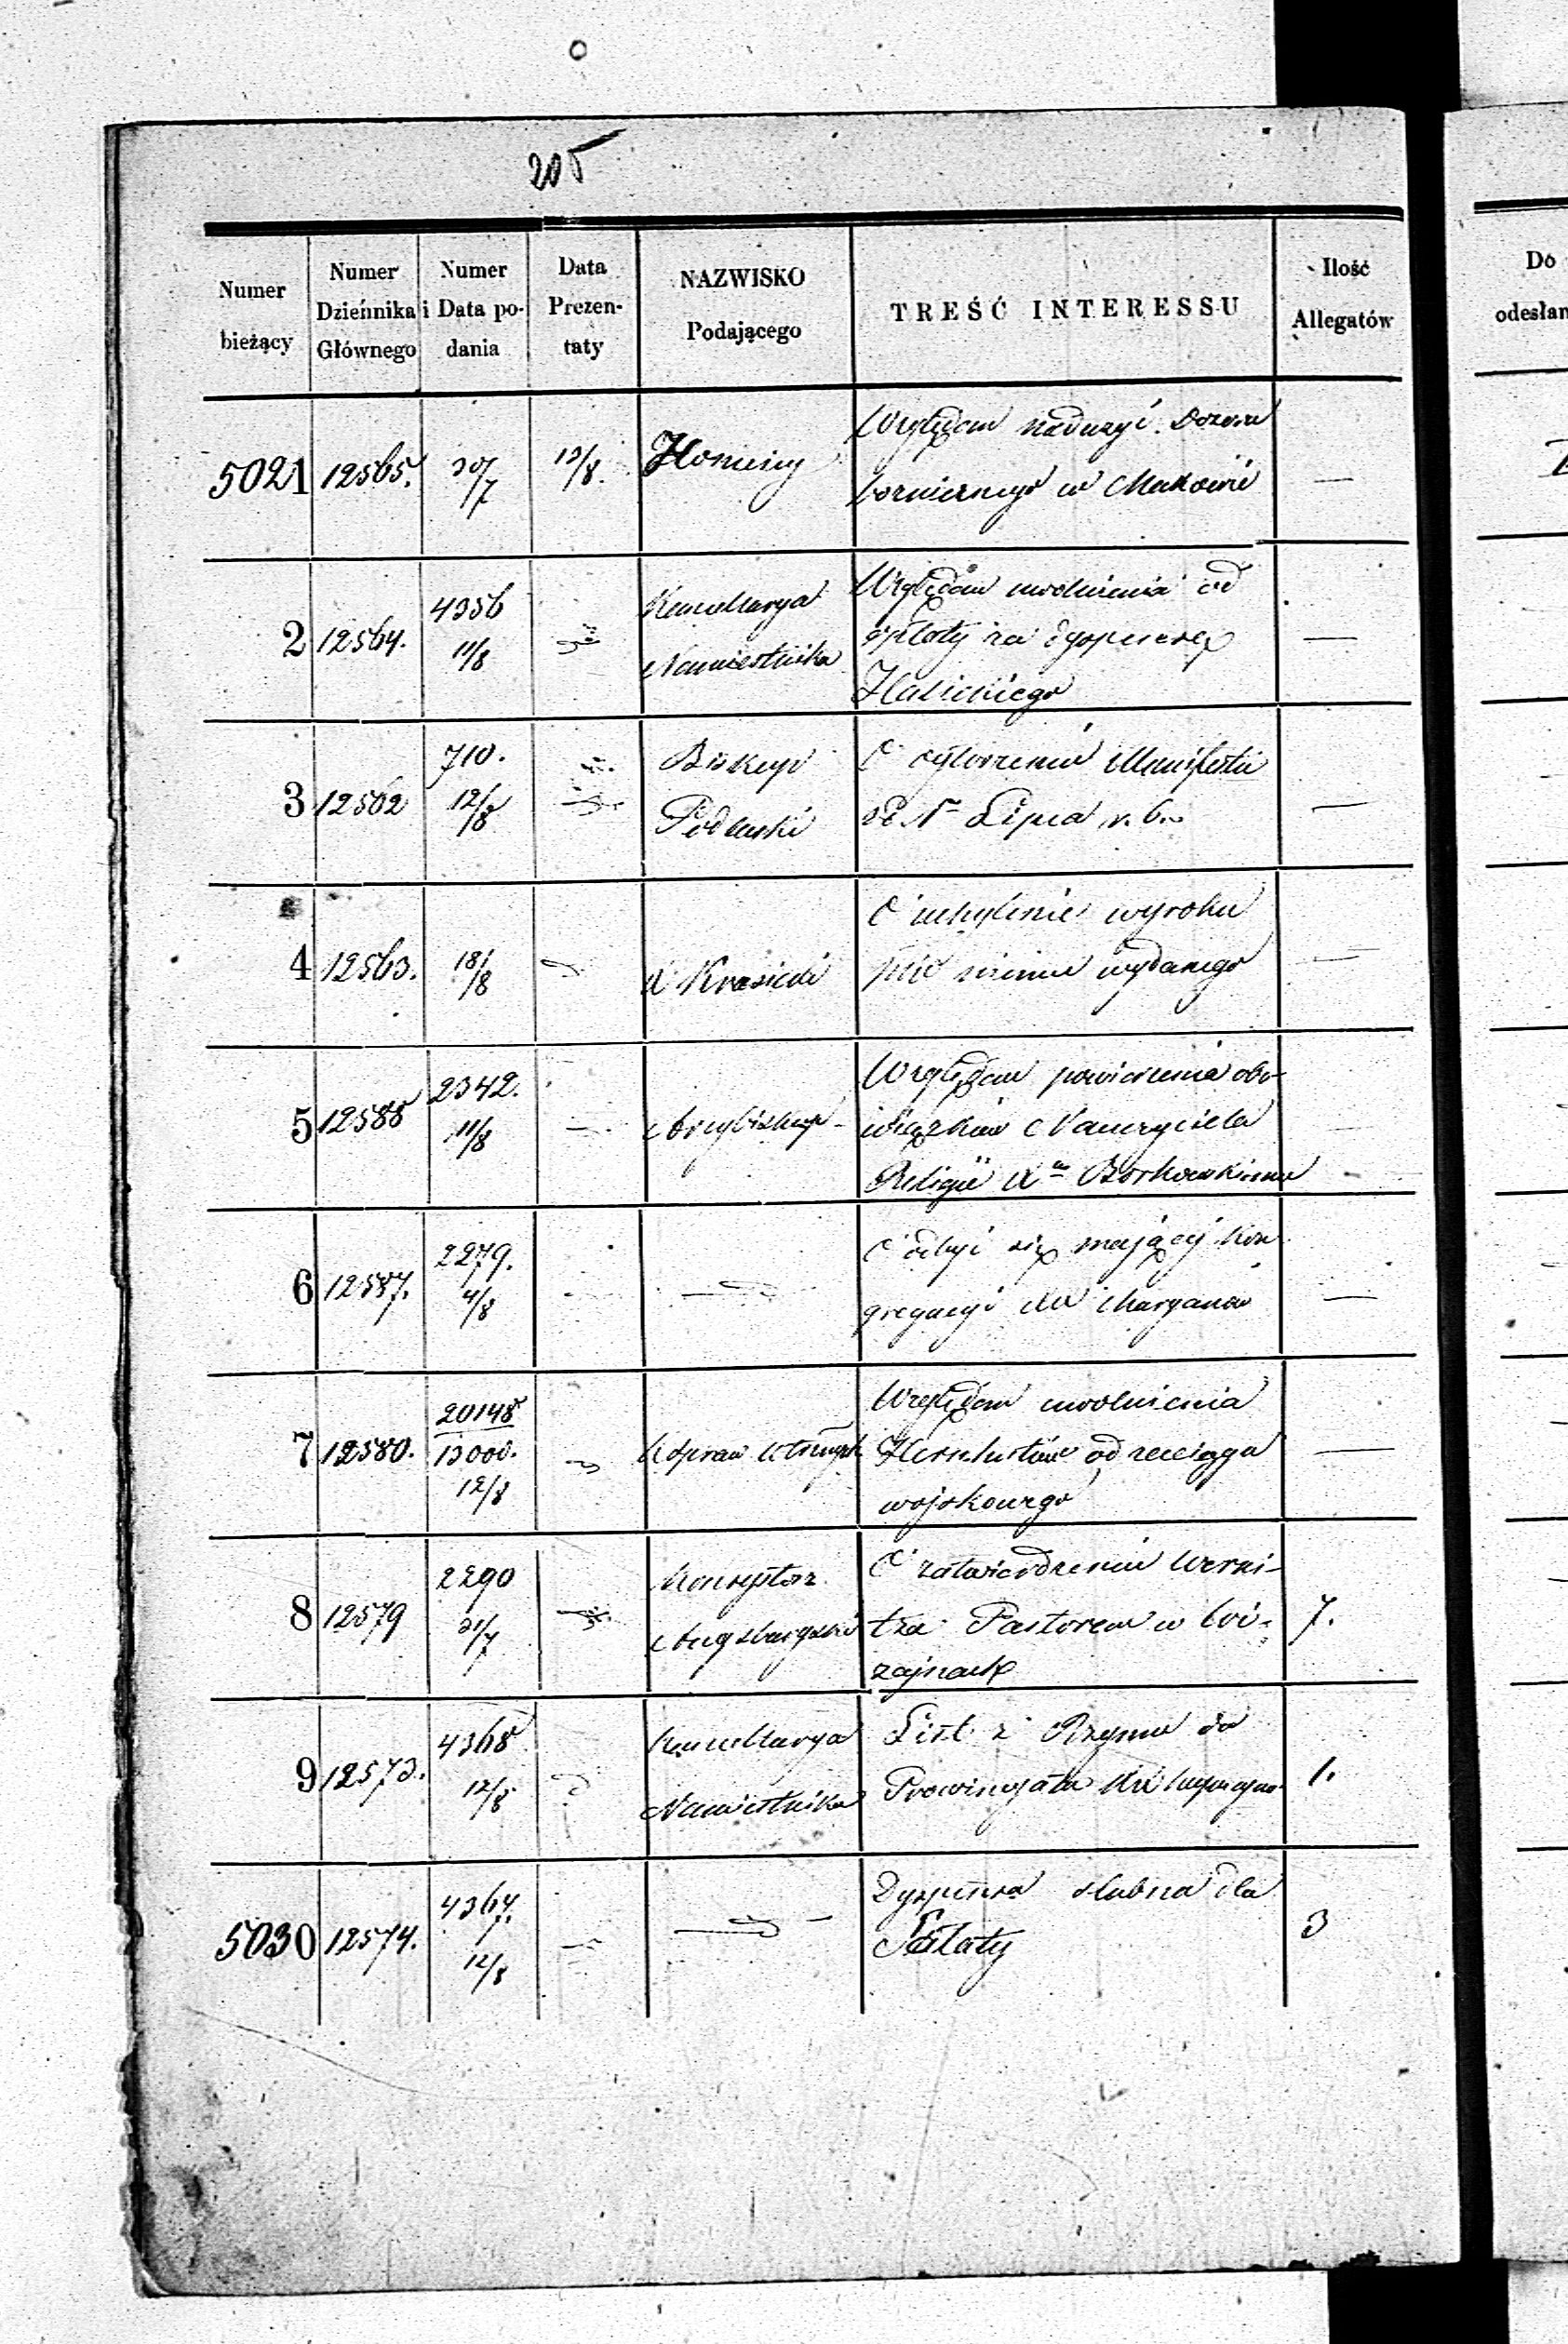 205
Numer bieżący
Numer Dziennika Głównego
Numer i Data podania
Data Prezentaty
NAZWISKO Podającego
TREŚĆ INTERESSU
Ilość Allegatów
Do
odesłan
5021 12565. 30/7 13/8. Względem nadużyć Dozoru
bożnicznego w Makowie —
2 12564. 4356 11/8 Kancellarya Namiestnika
Względem uwolnienia od
opłaty za dyspensę
Halickiego —
3 12562 710. 12/8 Biskup Podlaski
O ogłoszeniu Manifestu
Lipca r. b. —
4 12563. 18/8 X Krasicki
O uchylenie wyroku
wydanego —
5 12588 2342. 11/8 Arcybiskup
Względem powierzenia obo-
wiązków Nauczyciela
Religii X Borkowskiemu —
6 12587. 2279. 4/8 —
O odbyć się mającej kon
gregacyi XX Maryanów —
7 12580. 20148 13000. 12/8
Względem uwolnienia
od zaciągu
wojskowego —
8 12579 2290 31/7 Konsystorz Augsburgski
O zatwierdzeniu
Pastorem w Wi-
zajnach 7.
9 12573. 4368 12/8 Kancellarya Namiestnika
List z Rzymu do
Prowincyała 1.
5030 12574. 4367. 12/8 —
Dyspensa slubna dla
3